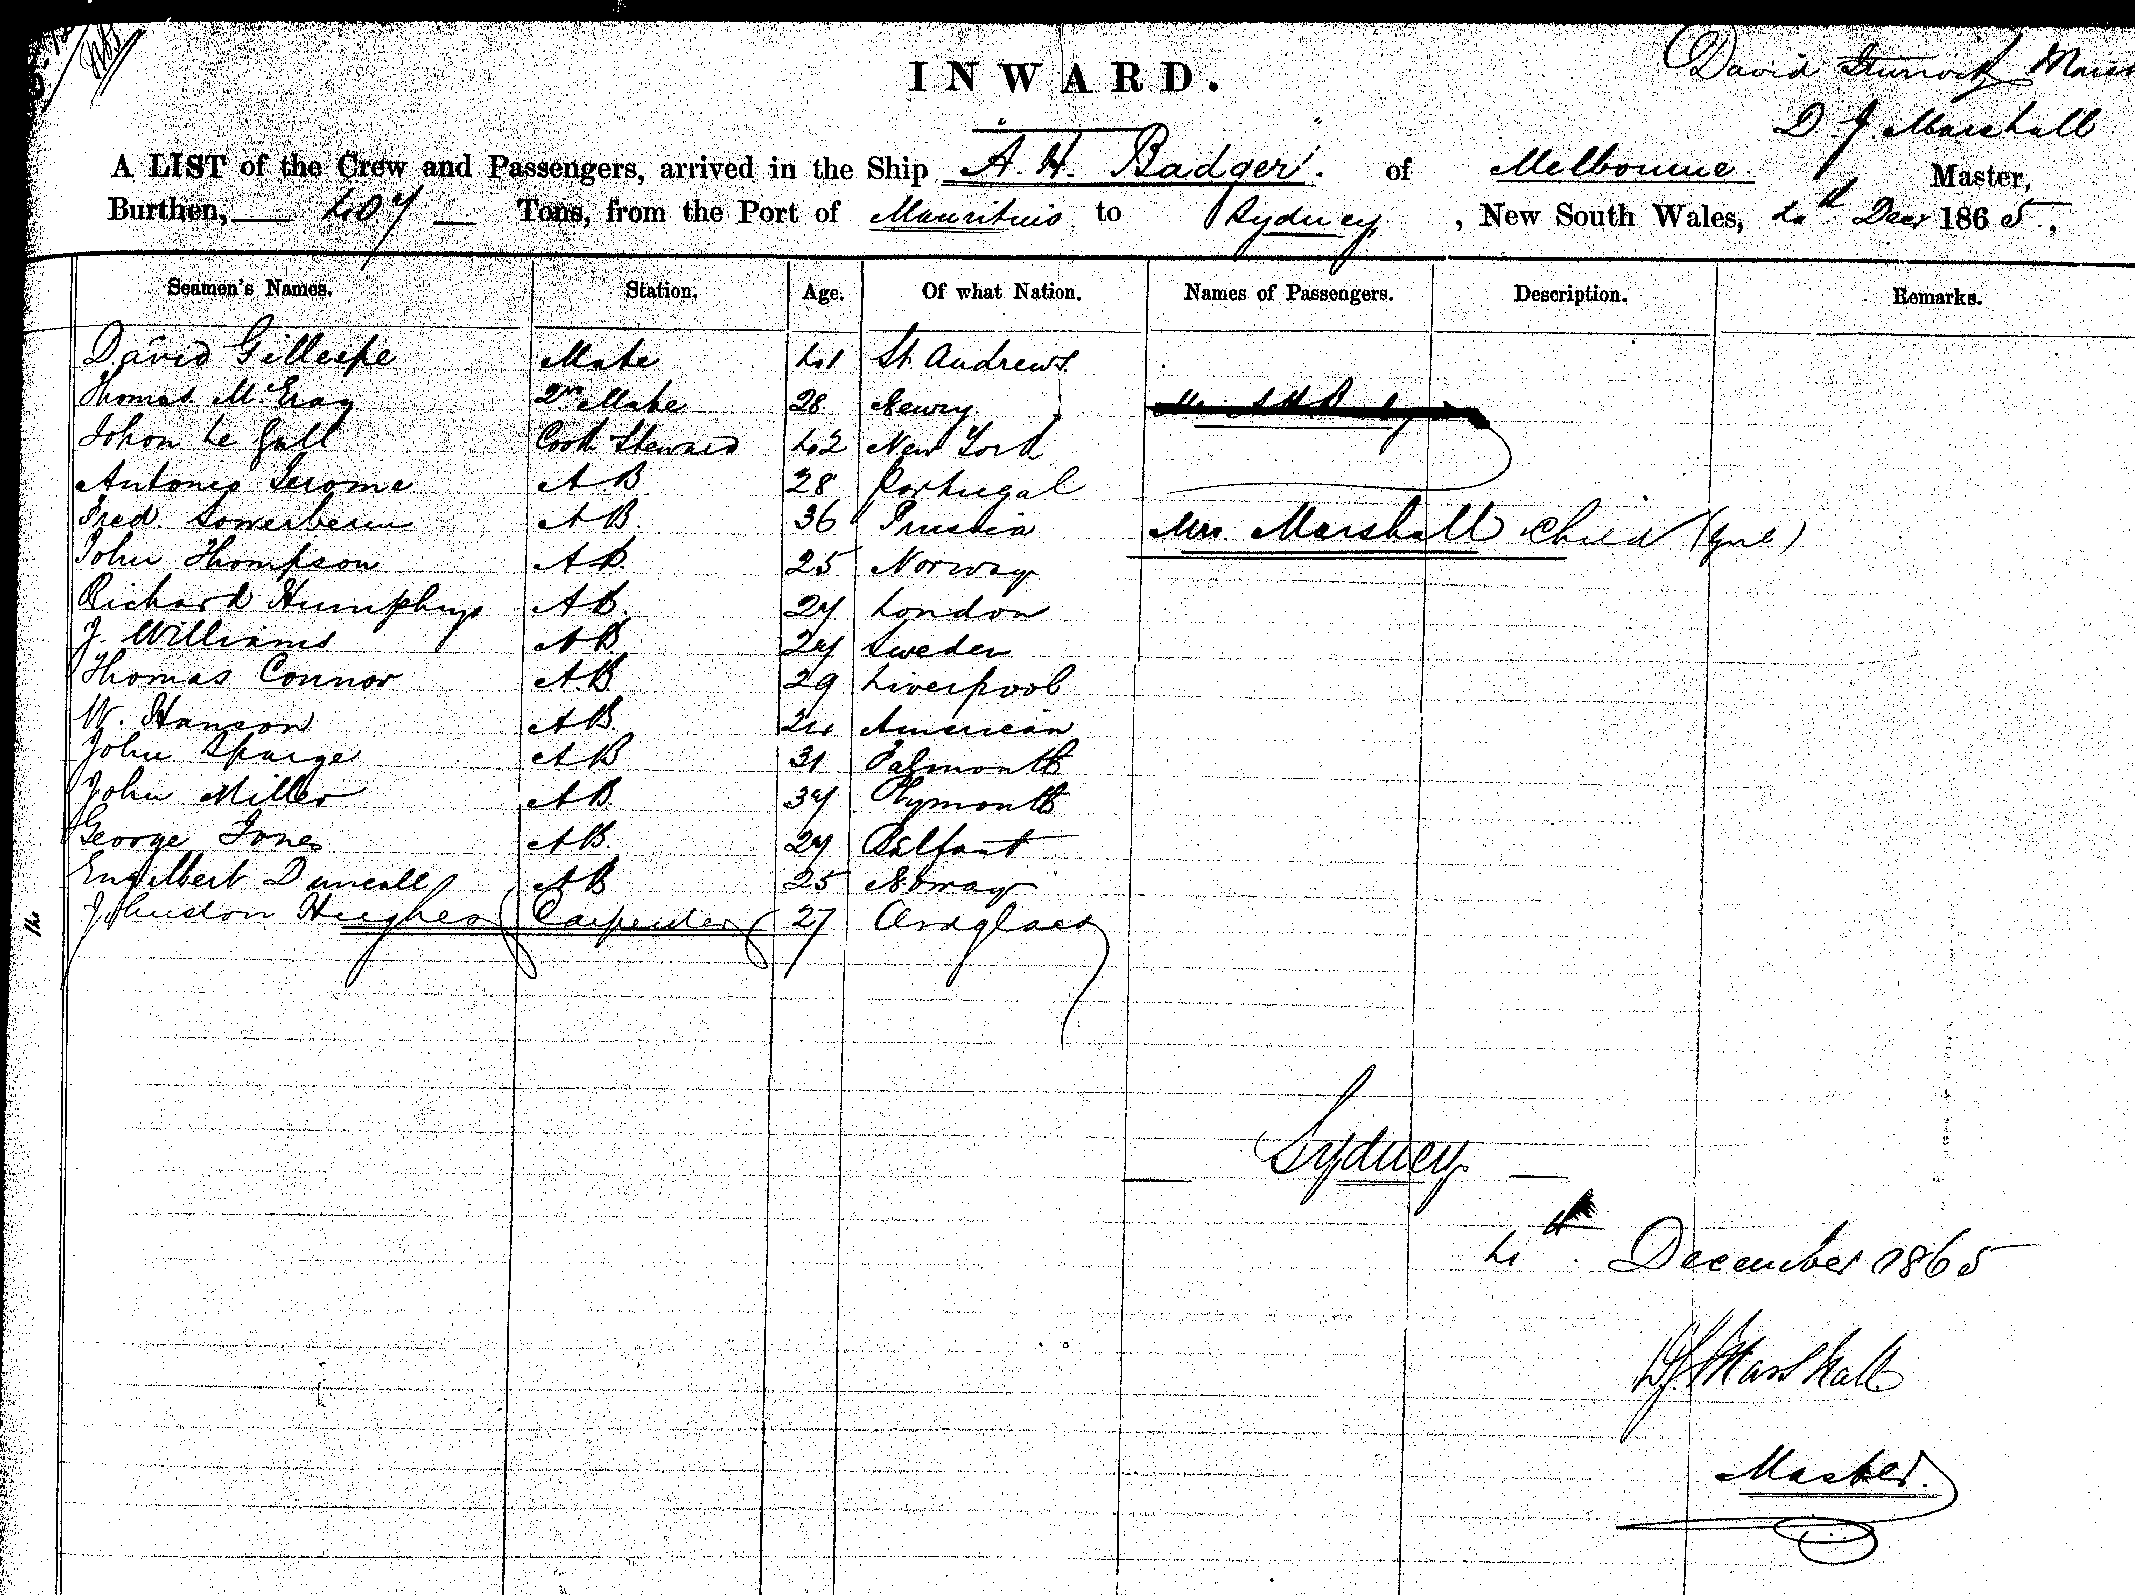 INWARD.
David Sturrock Marsh
D J Marshall
A LIST of the Crew and Passengers, arrived in the Ship "A. H. Badger". of Melbourne Master,
Burthen, 407 Tons, from the Port of Mauritius to Sydney, New South Wales, 4th Decr 1865.
Seamen's Names. Station. Age. Of what Nation. Names of Passengers. Description. Remarks.
David Gillespe Mate 41 St. Andrews
Thomas 2nd Mate 28 Newry
Johon Le Gall Cook Steward 42 New York
Antonio Jerome A B 28 Portugal
Fred. A B. 36 Prussia Mrs. Marshall Child (Girl)
John Thompson A B. 25 Norway
Richard Humphrys A B. 27 London
J. Williams A B 27 Sweden
Thomas Connor A.B 29 Liverpool
W. Hanson A B. 24 American
John Sparge A B 31 Falmouth
John Miller A B. 37 Plymouth
George Jones A B. 27 Belfast
Engelbert A B 25 Norway
Johnston Hughes Carpenter 27 Ardglass
Sydney
4th December 1865
D J Marshall
Master.